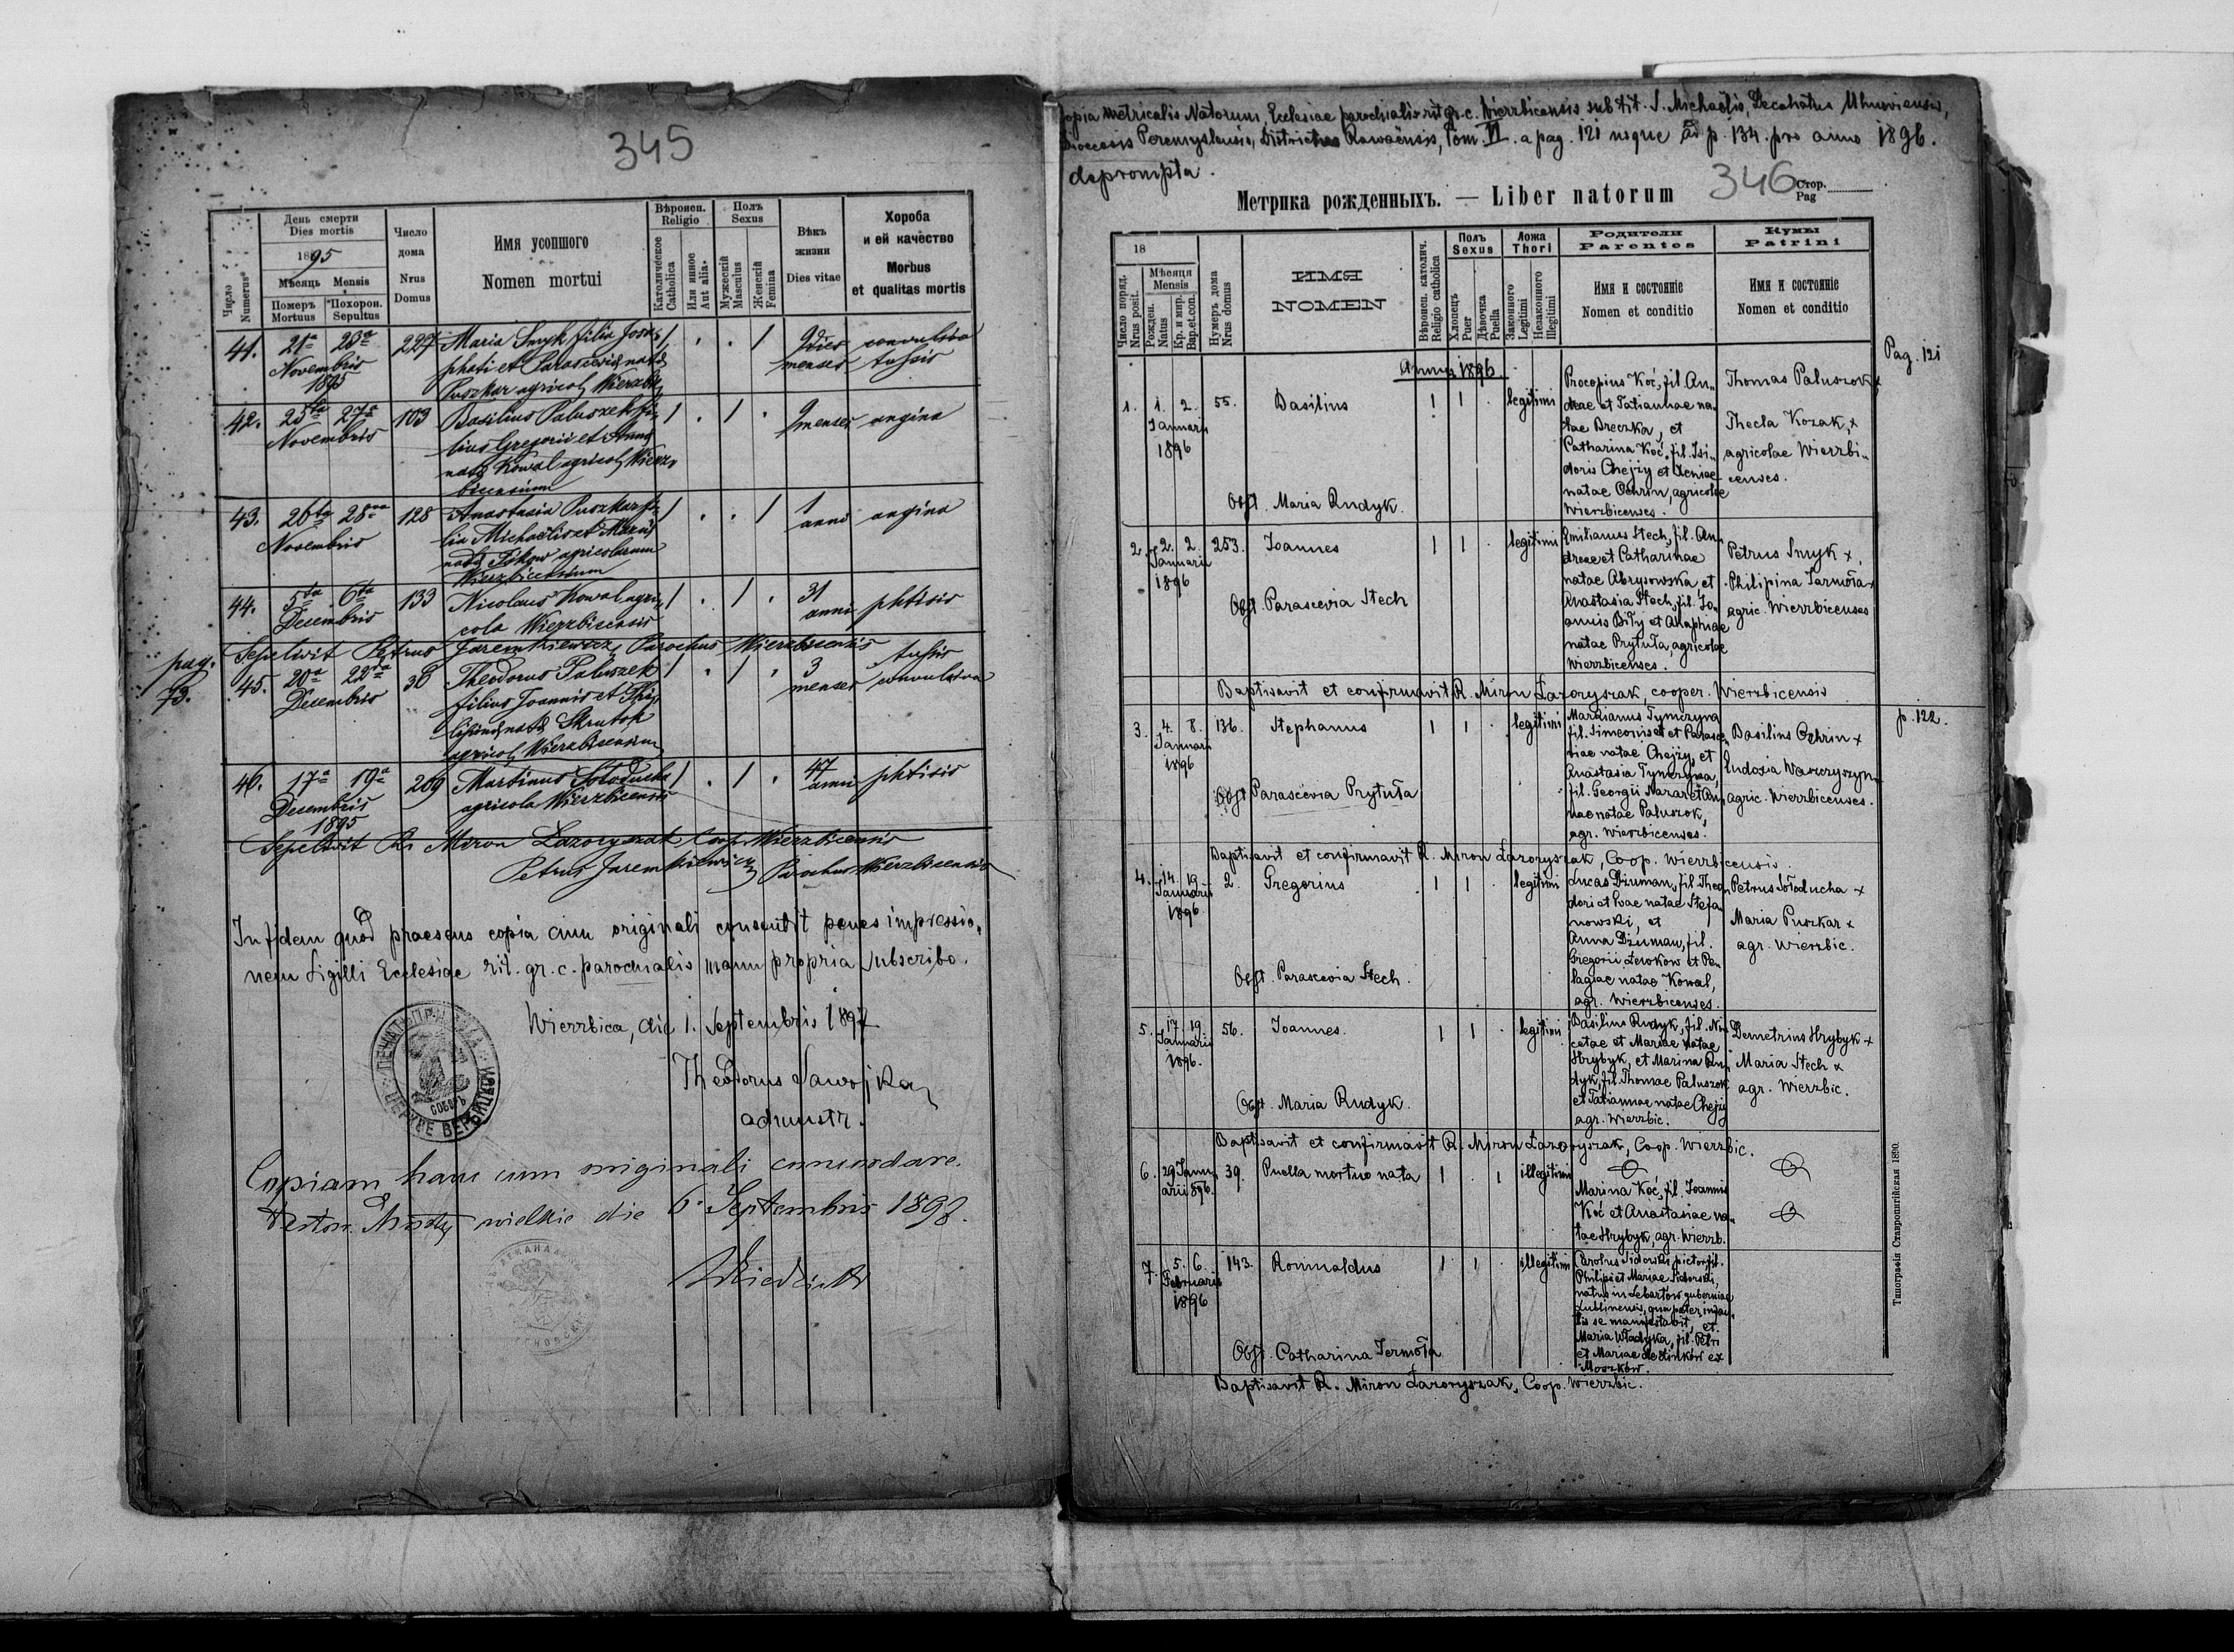 345
День смерти
Dies mortis
1895
Мѣсяць Mensis
Число
Numerus
Померъ
Mortuus
Похорон.
Sepultus
Число
дома
Nrus
Domus
Имя усопшого
Nomen mortui
Вѣроисп.
Religio
Католическое
Catholica
Или инное
Aut alia
Полъ
Sexus
Мужескій
Masculus
Женскій
Femina
Вѣкъ
жизни
Dies vitae
Хороба
и ей качество
Morbus
et qualitas mortis
41. 21a 23a 227 Maria Smyk filia Josa- 1 . . 1 9 dies convulsiva
Novembris phati et Parasceviae natae menses tussis
1895 Puszkar agricol. Wierzbic.
42. 25ta 27a 103 Basilius Paluszek fi- 1 . 1 . 9 menses angina
Novembris lius Gregorii et Annae
natae Kowal agricol. Wierz-
bicensium
43. 26ta 28va 128 Anastasia Puszkar fi- 1 . . 1 1 anni angina
Novembris lia Michaëlis et Mariae
natae agricolarum
Wierzbicensium
44. 5ta 6ta 133 Nicolaus Kowal agri- 1 . 1 . 31 anni phtisis
Decembris cola Wierzbicensis
Sepelivit Petrus Jaremkiewicz Parochus Wierzbicensis
pag. 73.
45. 20a 22da 38 Theodorus Paluszek 1 . 1 . 3 menses tussis convulsiva
Decembris filius Joannis et Phi-
lipinae natae Skrutok
agricol. Wierzbicensium
46. 17a 19a 269 Martinus Sołoducha 1 . 1 . 47 anni phtisis
Decembris agricola Wierzbicensis
1895
Sepelivit R. Miron Lazoryszak Coop. Wierzbicensis
Petrus Jaremkiewicz Parochus Wierzbicensis
In fidem quod praesens copia cum originali consentit penes impressio-
nem Sigilli Ecclesiae rit. gr. c. parochialis manu propria subscribo.
Wierzbica, die 1. Septembris 1897
Theodorus Sawojka
admistr.
СОБОРЪ
ЦЕРКВЕ ВЕРБИЦКОИ
Copiam hanc cum originali concordare
testor. Mosty wielkie die 6. Septembris 1898.
Copia Metricalis Natorum, Ecclesiae parochialis rit. gr. c. Wierzbicensis sub tit. S. Michaëlis, Decanatus Uhnoviensis,
Dioecesis Peremysliensis, Districtus Rawaënsis, Tom. VI. a pag. 121 usque ad p. 134. pro anno 1896.
deprompta.
346
Метрика рожденныхъ. — Liber natorum
Стор.
Pag
18
Число поряд.
Nrus posit.
Мѣсяця
Mensis
Рожден.
Natus
Кр. и мир.
Bap. et con.
Нумеръ дома
Nrus domus
ИМЯ
NOMEN
Вѣроисп. католич.
Religio catholica
Полъ
Sexus
Хлопецъ
Puer
Дѣвочка
Puella
Ложа
Thori
Законного
Legitimi
Незаконного
Illegitimi
Родители
Parentes
Имя и состояніе
Nomen et conditio
Кумы
Patrini
Имя и состояніе
Nomen et conditio
Annus 1896.
Pag. 121
1. 1. 2. 55. Basilius 1 1 . legitimi Procopius Koć, fil. An- Thomas Paluszok x
Januarii dreae et Tatiannae na-
1896 tae Dreczka, et Thecla Kozak, x
Catharina Koć, fil. Isi- agricolae Wierzbi-
doris Chejzy et Xeniae censes.
natae Ochrin, agricolae
Obst. Maria Rudyk. Wierzbicenses.
2. 2. 2. 253. Joannes 1 1 . legitimi Emilianus Stech, fil. An-
Januarii dreae et Catharinae Petrus Smyk x.
1896 natae Abrysowska et Philipina Jarmoła x
Obst. Parascevia Stech Anastasia Stech, fil. Jo- agric. Wierzbicenses
annis Biły et Ahaphiae
natae Prytuła, agricolae
Wierzbicenses.
Baptisavit et confirmavit R. Miron Łazoryszak, cooper. Wierzbicensis
p. 122.
3. 4. 8. 136. Stephanus 1 1 . legitimi Marcianus Tymczyna
Januarii fil. Simeonis et Parasce- Basilius Ochrin x
1896 viae natae Chejzy, et
Anastasia Tymczyna, Eudoxia Wawczyszyn
Obst. Parascevia Prytuła fil. Georgii Nazar et An- agric. Wierzbicenses.
nae natae Paluszok,
agr. Wierzbicenses.
Baptisavit et confirmavit R. Miron Łazoryszak, Coop. Wierzbicensis.
4. 14. 19. 2. Gregorius 1 1 . legitimi Lucas Dżuman, fil. Theo- Petrus Sołoducha x
Januarii dori et Evae natae Stefa-
1896. nowski, et Maria Puszkar x
Anna Dżuman, fil. agr. Wierzbic.
Gregorii Lewkow et Pe-
Obst. Parascevia Stech. lagiae natae Kowal,
agr. Wierzbicenses.
5. 17. 19. 56. Joannes. 1 1 . legitimi Basilius Rudyk, fil. Ni- Demetrius Hrybyk x
Januarii cetae et Mariae natae
1896. Hrybyk, et Marina Ru- Maria Stech x
dyk, fil. Thomae Paluszok agr. Wierzbic.
Obst. Maria Rudyk. et Tatiannae natae Chejzy
agr. Wierzbic.
Baptisavit et confirmavit R. Miron Łazoryszak, Coop. Wierzbic.
6. 29 Janu- 39. Puella mortuo nata 1 . 1 illegitimi
arii 1896. Marina Koć, fil. Joannis
Koć et Anastasiae na-
tae Hrybyk, agr. Wierzb.
7. 5. 6. 143. Romualdus 1 1 . illegitimi Carolus Sidorski pictor, fil.
Februarii Philipi et Mariae Sidorski,
1896 natus in Lebartow guberniae
Lublinensis, qua pater infan-
tis se manifestavit, et
Maria Władyka, fil. Petri
Obst. Catharina Jermoła et Mariae de Hinków ex
Moszków.
Baptisavit R. Miron Łazoryszak, Coop. Wierzbic.
Типографія Ставропигійская 1890.